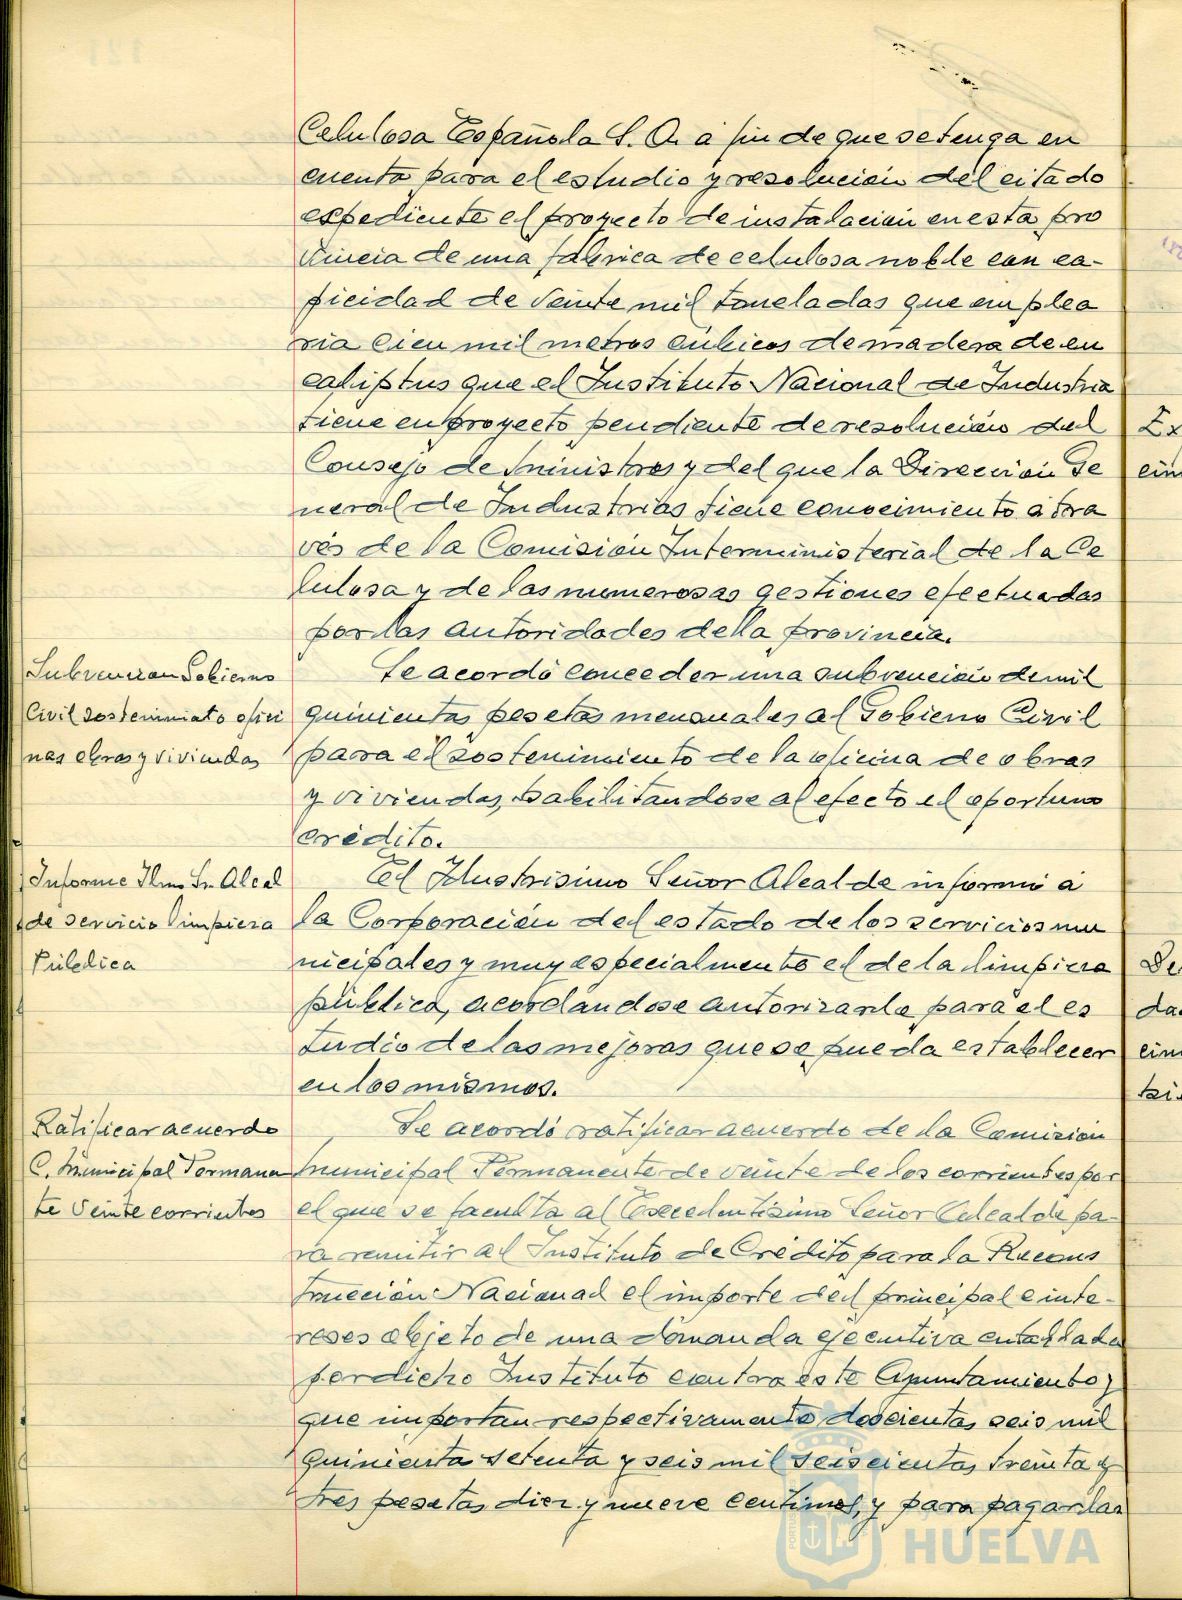 Celulosa Española S. A. a fin de que se tenga en
cuenta para el estudio y resolución del citado
expediente el proyecto de instalación en esta pro
vincia de una fábrica de celulosa noble con ca-
picidad de veinte mil toneladas que emplea
ria cien mil metros cúbicos de madera de eu
caliptus que el Instituto Nacional de Industria
tiene en proyecto pendiente de resolución del
Consejo de Ministros y del que la Dirección Ge
neral de Industrias tiene conocimiento a tra
vés de la Comisión Interministerial de la Ce
lulosa y de las numerosas gestiones efectuadas
por las autoridades de la provincia.
Subvencion Gobierno
Civil sostenimiato ofici
nas obras y viviendas
Se acordó conceder una subvención de mil
quinientas pesetas mensuales al Gobierno Civil
para el sostenimiento de la oficina de obras
y viviendas, habilitandose al efecto el oportuno
crédito.
Informe Ilmo Sr. Alcal
de servicio limpieza
Pública
El Ilustrisimo Señor Alcalde informó a
la Corporación del estado de los servicios mu
nicipales y muy especialmente el de la limpieza
pública, acordándose autorizarle para el es
tudio de las mejoras que se pueda establecer
en los mismos.
Ratificar acuerdo
C. Municipal Permanen
te veinte corrientes
Se acordó ratificar acuerdo de la Comisión
Municipal Permanente de veinte de los corrientes por
el que se faculta al Excelentisimo Señor Alcalde pa-
ra remitir al Instituto de Crédito para la Recons
trucción Nacional el importe del principal e inte-
reses objeto de una demanda ejecutiva entablada
por dicho Instituto contra este Ayuntamiento y
que importan respectivamente doscientas seis mil
quinientas setenta y seis mil seiscientas treinta y
tres pesetas diez y nueve centimos, y para pagarlas
Ex
cim
De
da
cim
HUELVA